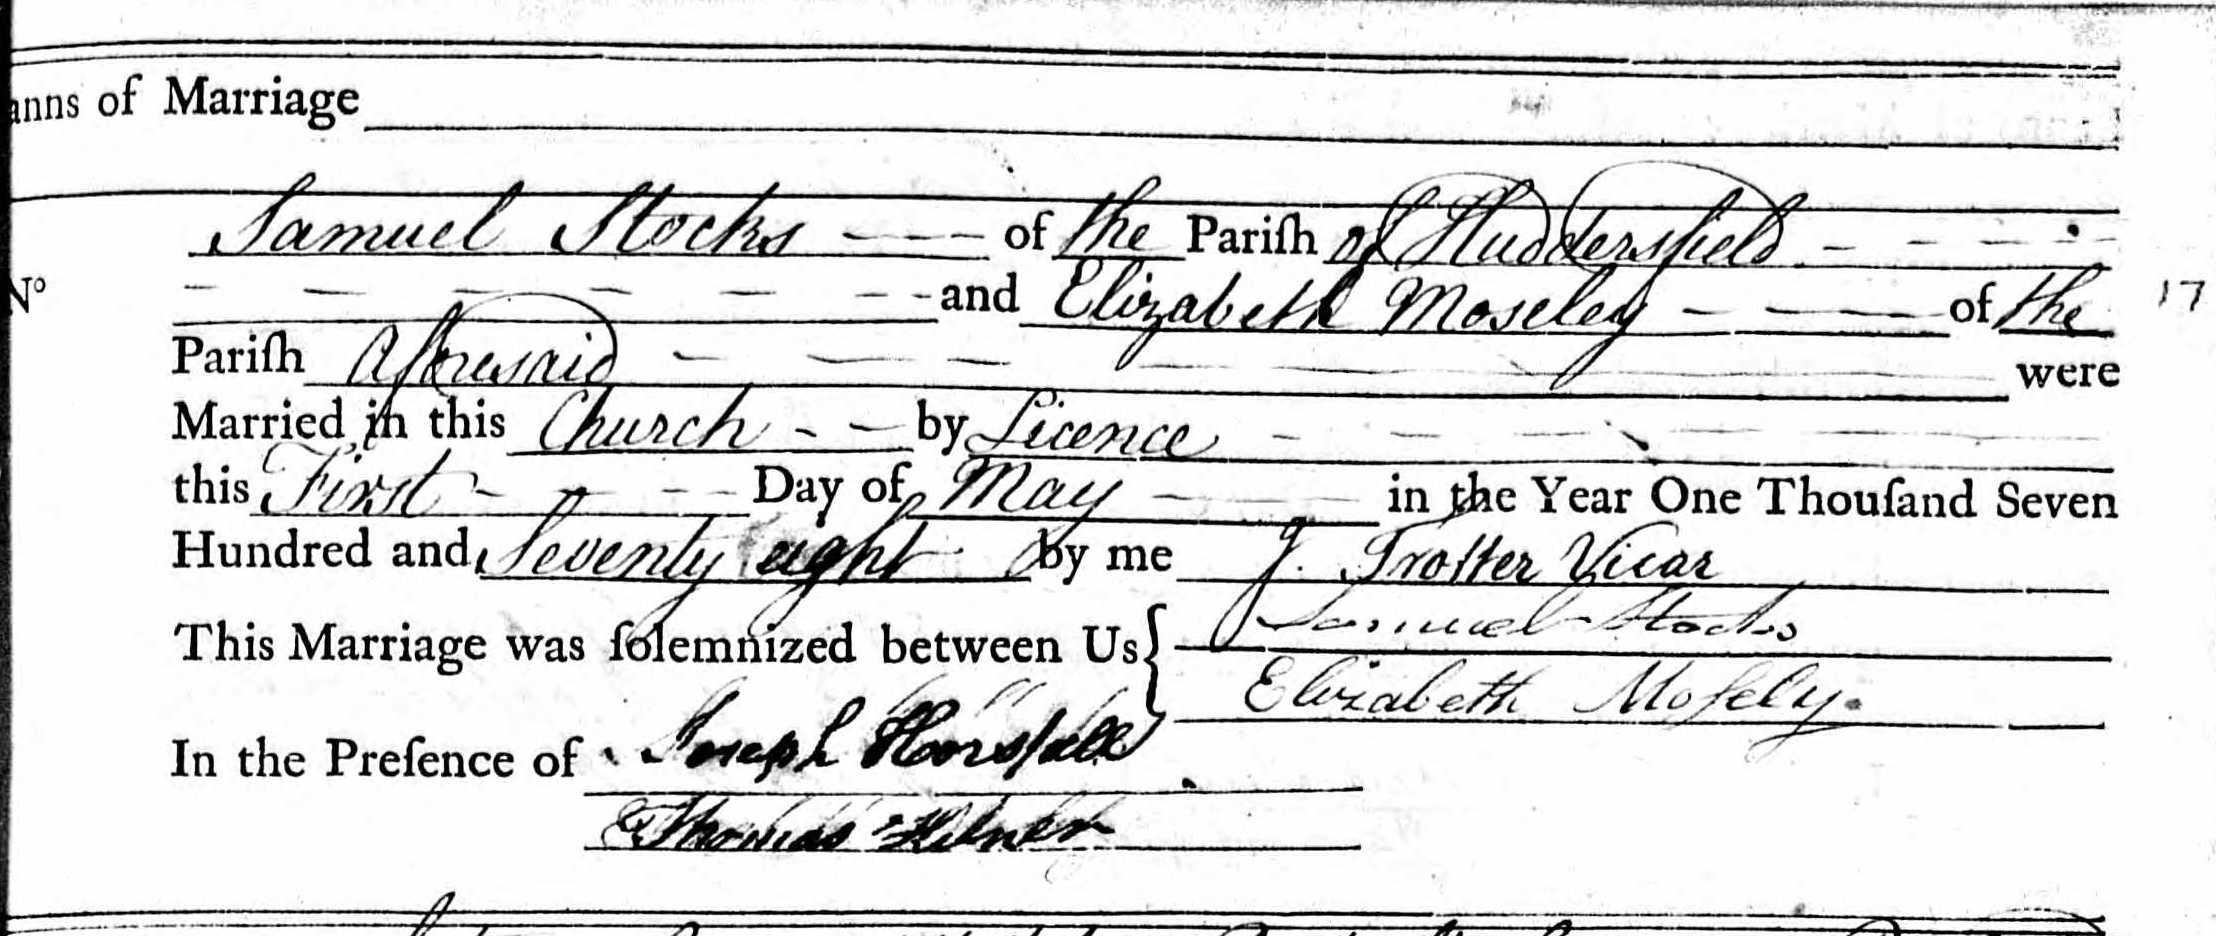 anns of Marriage
Samuel Stocks - - - of the Pariſh of Huddersfield - - - -
No - - - - - - - and Elizabeth Moseley - - - of the 17
Pariſh Aforesaid - - - - - - - were
Married in this Church - - by Licence - - - - - -
this First - - - - Day of May - - - in the Year One Thouſand Seven
Hundred and Seventy eight by me J. Trotter Vicar
This Marriage was ſolemnized between Us { Samuel Stocks
Elizabeth Moſely.
In the Preſence of Joseph Horsfall
& Thomas